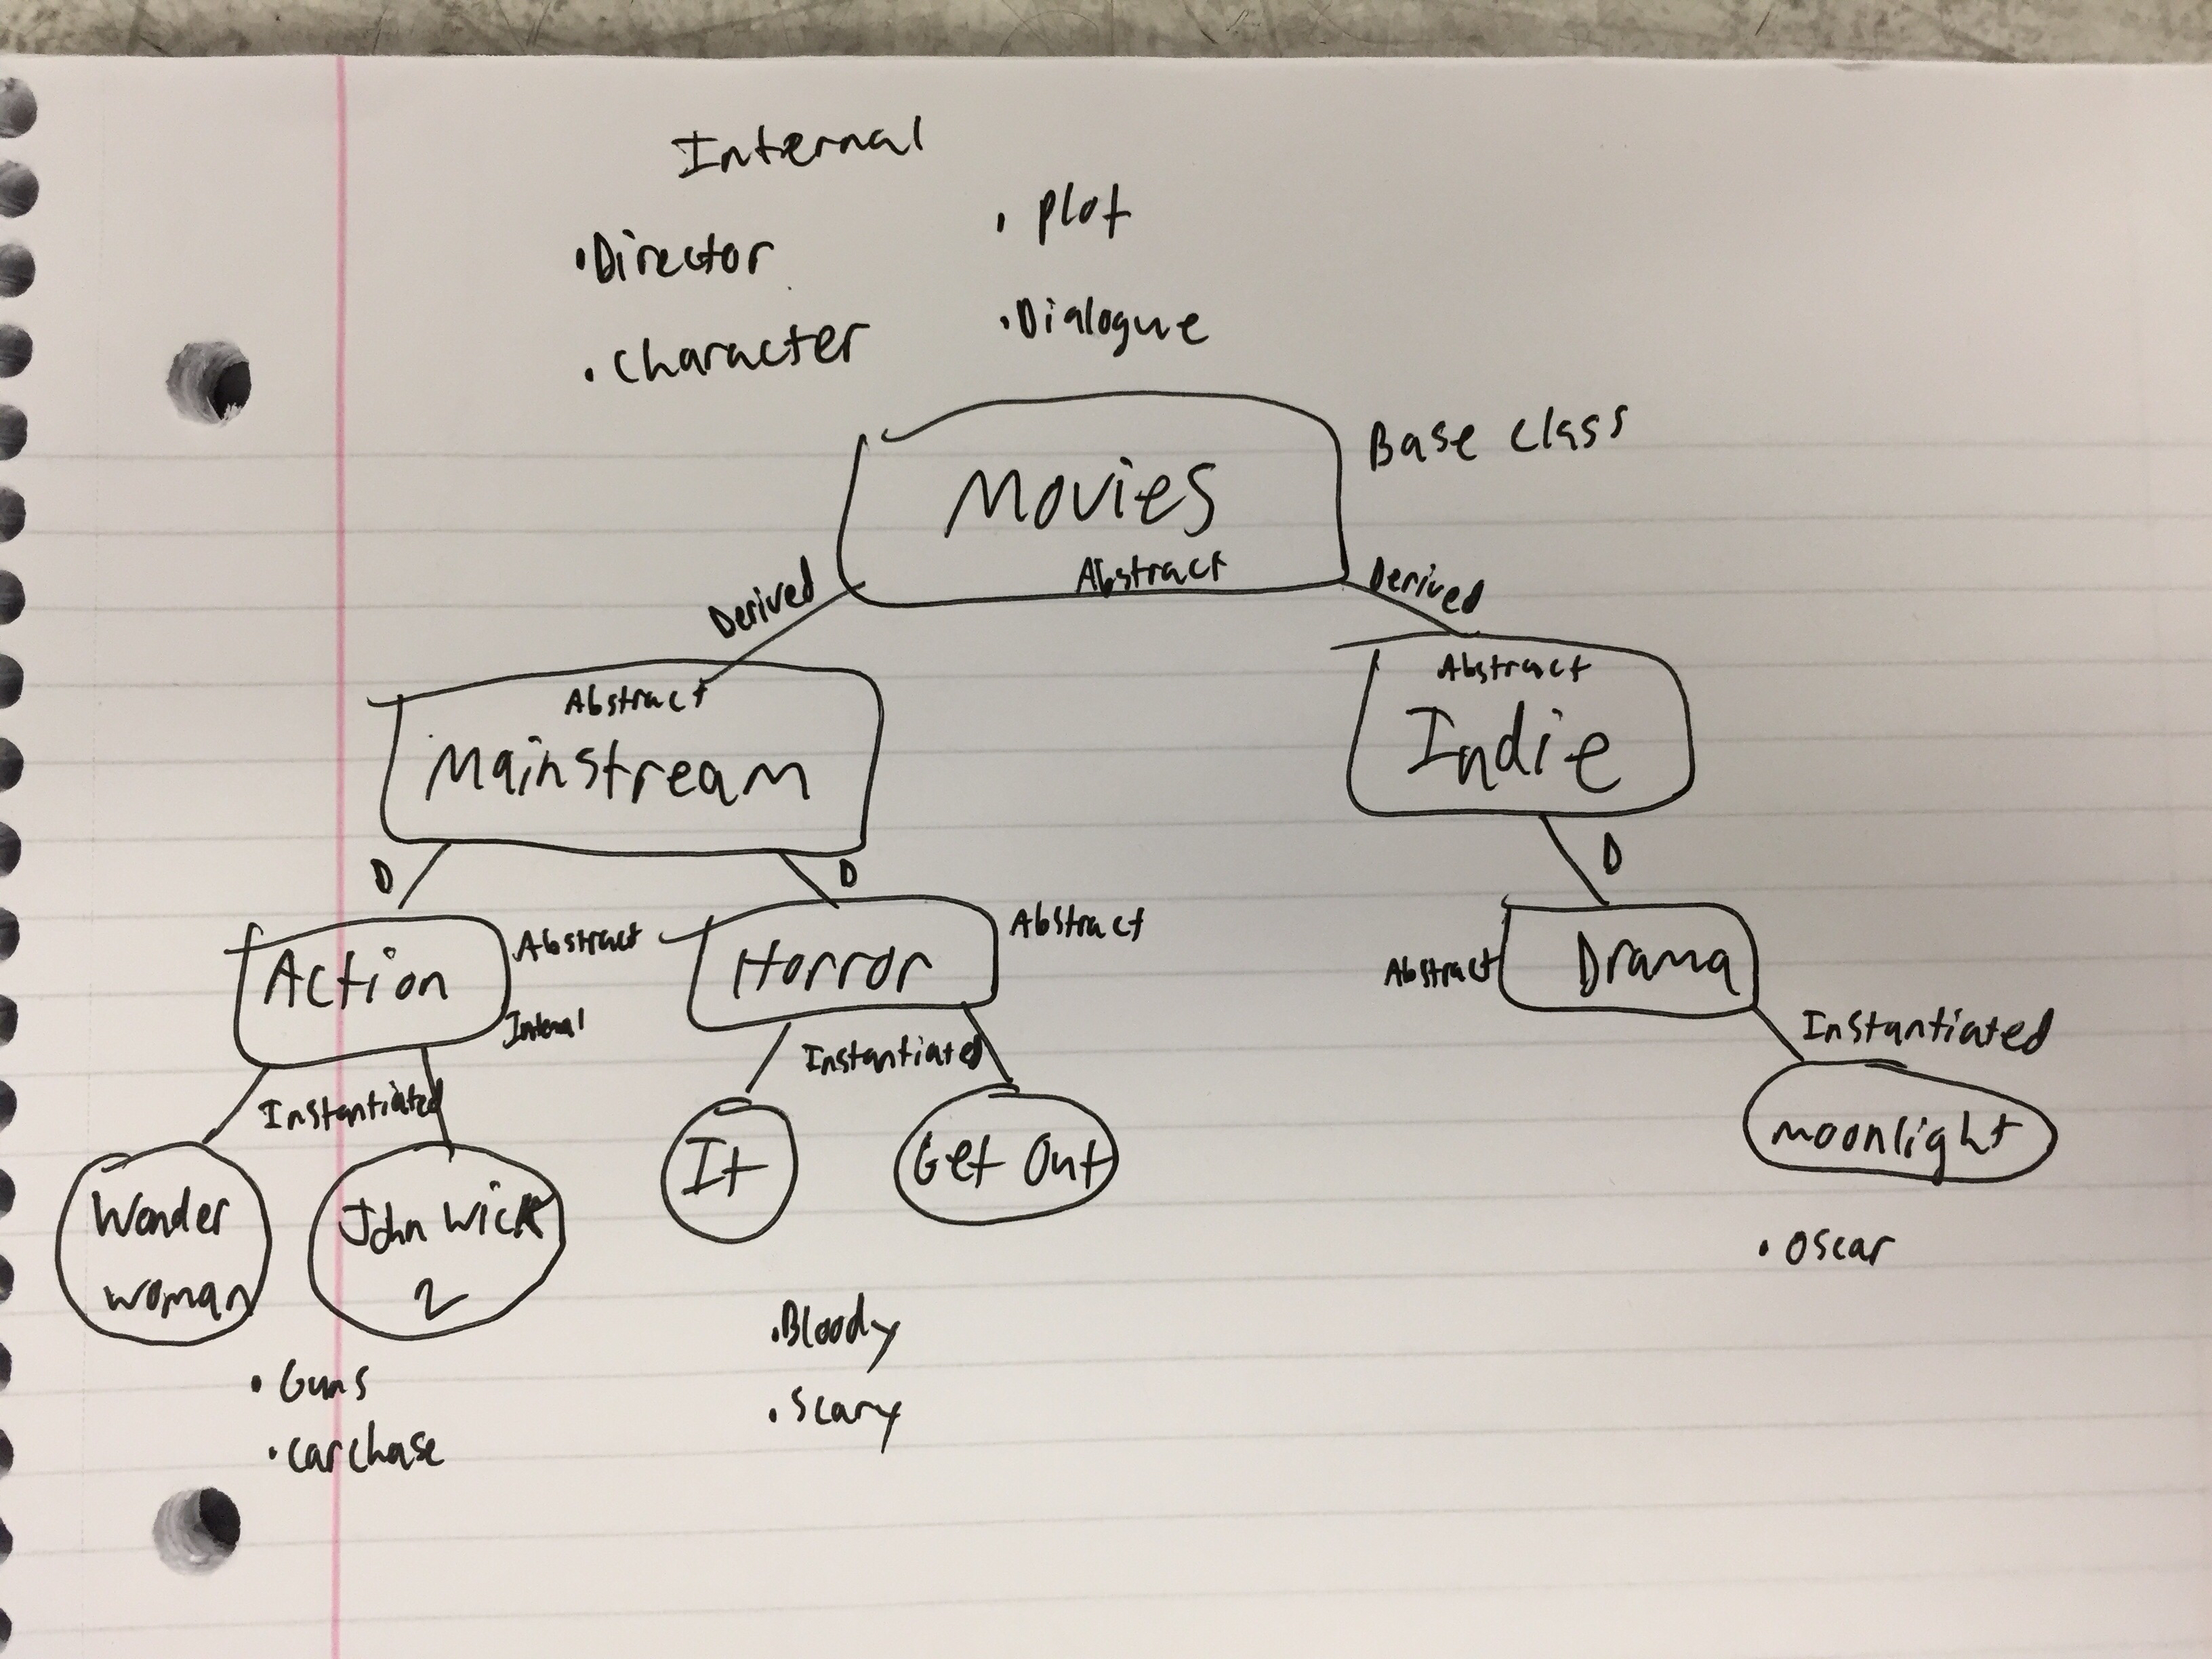 Internal
• Director
• plot
• character
• Dialogue
Base class
Movies
Abstract
Derived
Derived
Abstract
Mainstream
Abstract
Indie
D
D
D
Action
Abstract
Internal
Horror
Abstract
Abstract
Drama
Instantiated
Instantiated
Instantiated
Wonder
woman
John Wick
2
It
Get Out
moonlight
• Guns
• carchase
• Bloody
• Scary
• Oscar